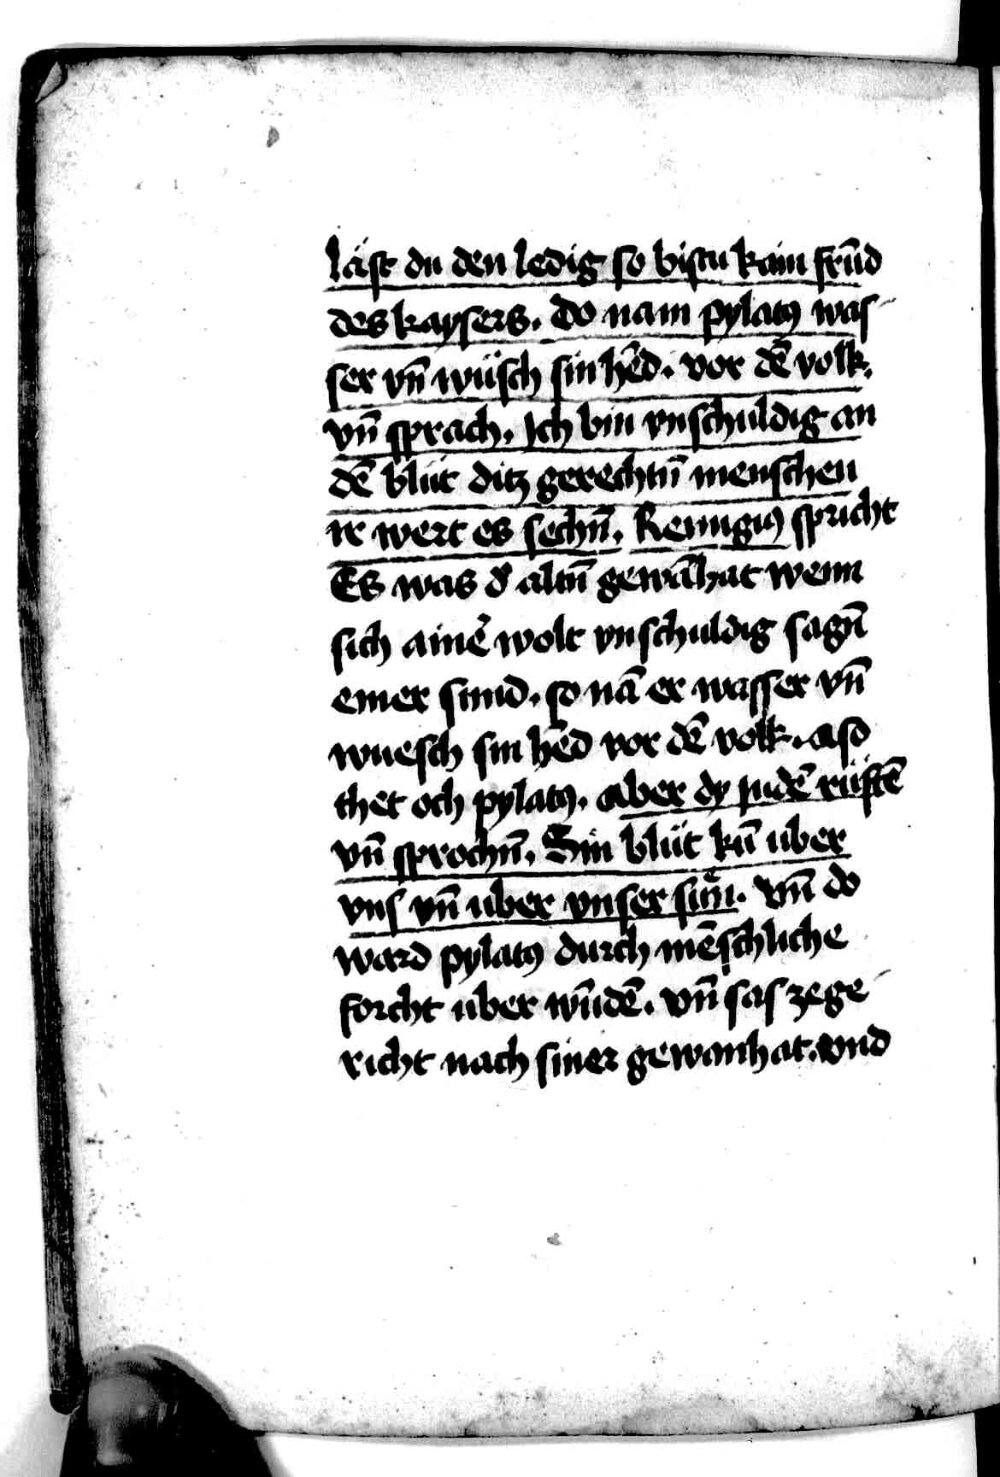 läst du den ledig so bistu kain frūd
des kaysers. Do nam pylatꝰ was-
ser vn̄ wüsch sin hēd. vor dē volk.
vn̄ sprach. Ich bin vnschuldig an
dē blüt ditz gerechtn̄ menschen
ir wert es sechn̄. Remigiꝰ spricht
Es was d̓ altn̄ gewāhat wenn
sich ainē wolt vnschuldig sagn̄
einer sunnd. so nā er wasser vn̄
wuesch sin hēd vor dē volk. also
thet och pylatꝰ. aber dy judē rüftē
vn̄ sprochn̄. Sin blüt kū uber
vns vn̄ uber vnser sün. vnn do
ward pylatꝰ durch mēschliche
forcht uber wūdē. vn̄ sas ze ge-
richt nach siner gewanhat. vnd